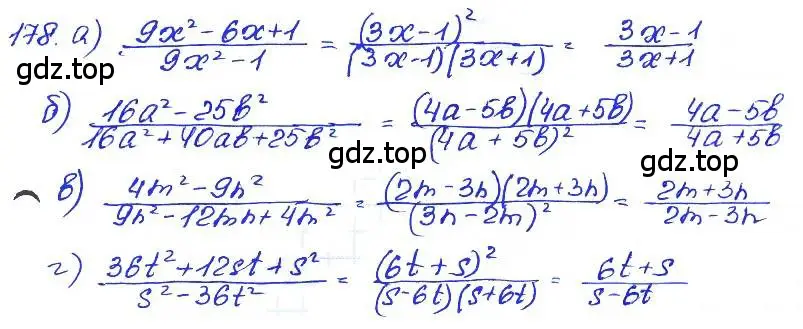 178. а) (9x² - 6x + 1)/(9x² - 1) = (3x - 1)²/((3x - 1)(3x + 1)) = (3x - 1)/(3x + 1)
gdz.top gdz.top gdz.top
б) (16a² - 25b²)/(16a² + 40ab + 25b²) = ((4a - 5b)(4a + 5b))/(4a + 5b)² = (4a - 5b)/(4a + 5b)
gdz.top
в) (4m² - 9n²)/(9n² - 12mn + 4m²) = ((2m - 3n)(2m + 3n))/(3n - 2m)² = (2m + 3n)/(2m - 3n)
gdz.top
г) (36t² + 12st + s²)/(s² - 36t²) = (6t + s)²/((s - 6t)(s + 6t)) = (6t + s)/(s - 6t)
gdz.top